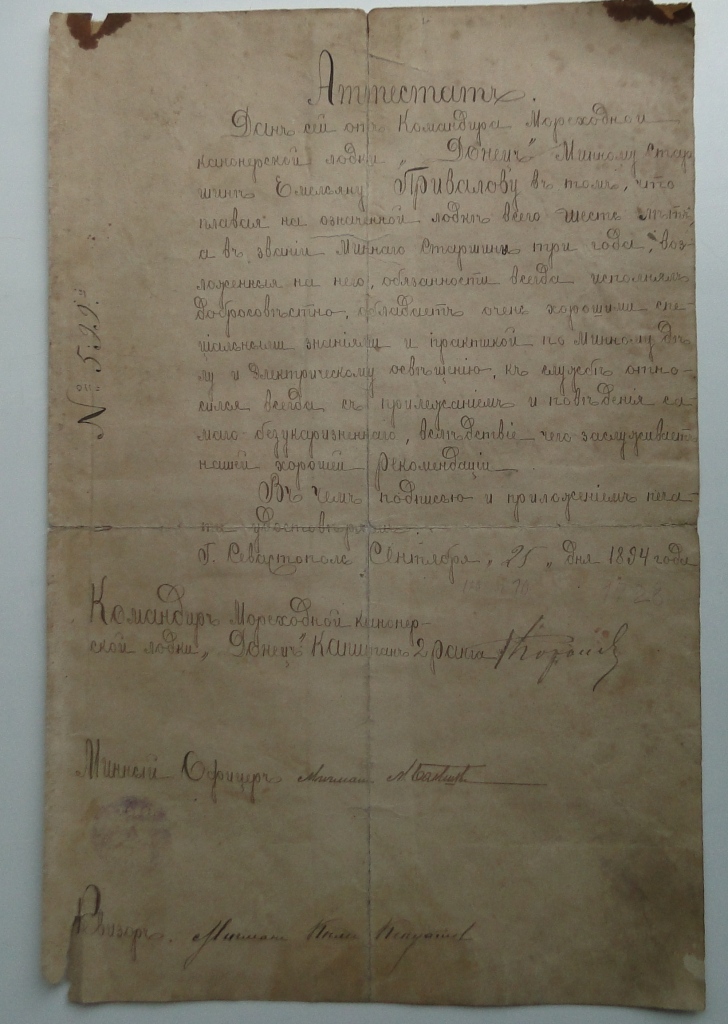 Аттестатъ.
Данъ сей отъ Командира Мореходной
канонерской лодки „Донецъ" Минному Стар-
шинѣ Емельяну Привалову въ томъ, что
плавая на означенной лодкѣ всего шесть лѣтъ,
а въ званіи Миннаго Старшины три года, воз-
ложенныя на него, обязанности всегда исполнялъ
добросовѣстно, обладаетъ очень хорошими спе-
ціальными знаніями и практикой по Минному дѣ-
лу и Электрическому освѣщенію, къ службѣ отно-
сился всегда съ прилежаніемъ и поведенія са-
маго безукоризненнаго, вслѣдствіе чего заслуживаетъ
нашей хорошей рекомендаціи
Въ чемъ подписью и приложеніемъ печа-
ти удостовѣряемъ.
Г. Севастополь Сентября „25„ дня 1894 года
№ 599.
Командиръ Мореходной канонер-
ской лодки „Донецъ" Капитанъ 2 ранга
Минный Офицеръ Мичманъ
Ревизоръ. Мичманъ